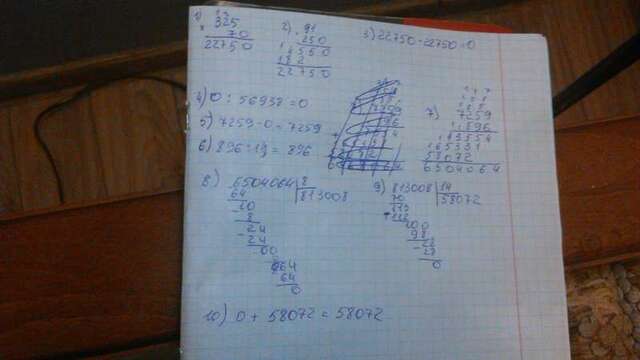 1) 325
70
22750
2) 91
250
4550
182
22750
3) 22750-22750=0
4) 0 : 56938 = 0
5) 7259-0=7259
6) 896 : 1 = 896
7) 7259
896
43554
65331
58072
6504064
8) 6504064 8
64 813008
10
8
24
24
00
064
64
0
9) 813008 14
70 58072
113
112
100
98
28
28
0
10) 0 + 58072 = 58072